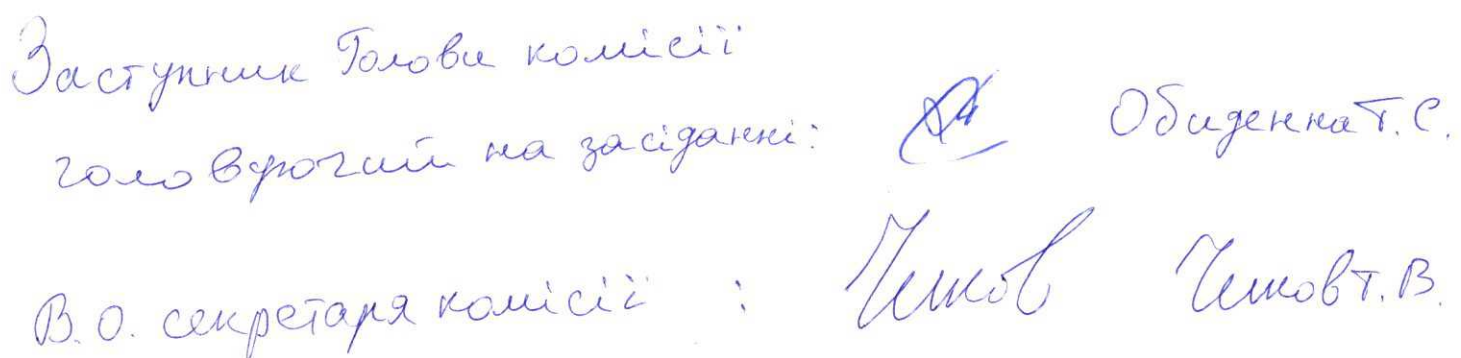 Заступник Голови комісії
головуючий на засіданні: Обиденна Т.С.
В.О. секретаря комісії : Чиков Чиков Т.В.